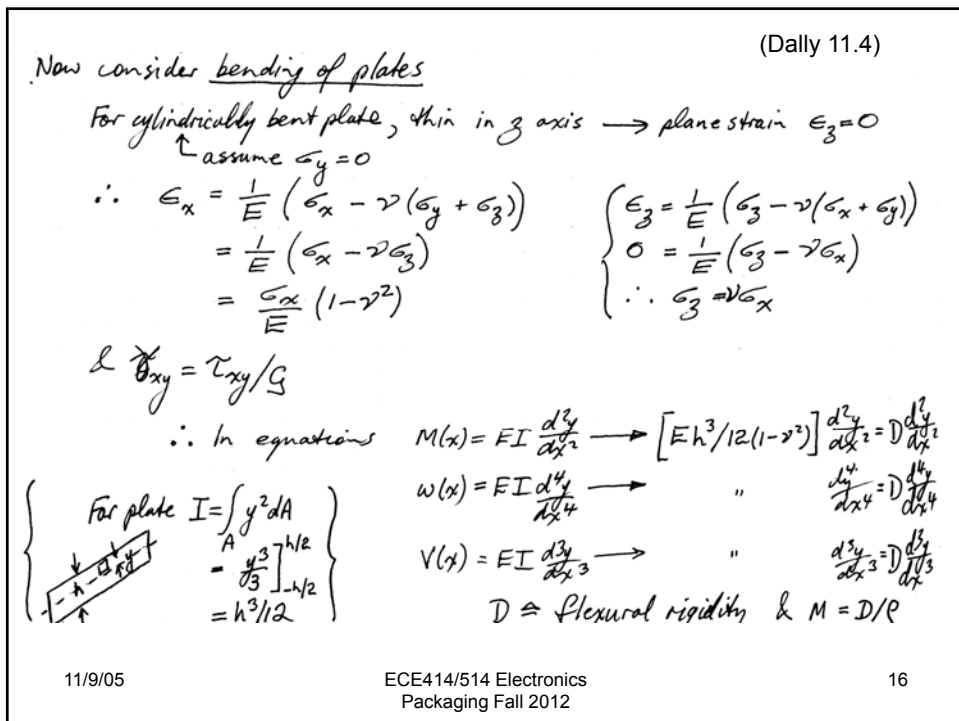 (Dally 11.4)
Now consider bending of plates
For cylindrically bent plate, thin in z axis → plane strain ϵz=0
assume σy=0
∴ ϵx = 1/E (σx - ν(σy + σz))
= 1/E (σx - νσz)
= σx/E (1-ν²)
{ ϵz = 1/E (σz - ν(σx + σy))
0 = 1/E (σz - νσx)
∴ σz = νσx
& γxy = τxy/G
∴ In equations M(x) = EI d²y/dx² → [Eh³/12(1-ν²)] d²y/dx² = D d²y/dx²
w(x) = EI d⁴y/dx⁴ → " d⁴y/dx⁴ = D d⁴y/dx⁴
V(x) = EI d³y/dx³ → " d³y/dx³ = D d³y/dx³
D ≙ flexural rigidity & M = D/ρ
For plate I = ∫A y²dA
= y³/3 ]-h/2 h/2
= h³/12
h
y
11/9/05
ECE414/514 Electronics
Packaging Fall 2012
16